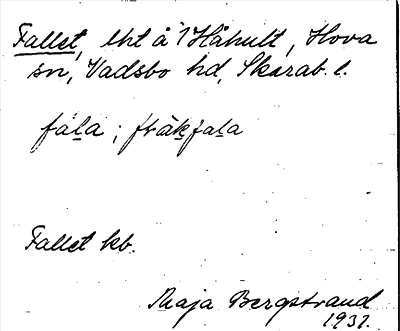 Fallet, lht å 1 Håhult, Hova
sn, Vadsbo hd, Skarab. l.
fala; fräkfala
Fallet kb.
Maja Bergstrand
1931.